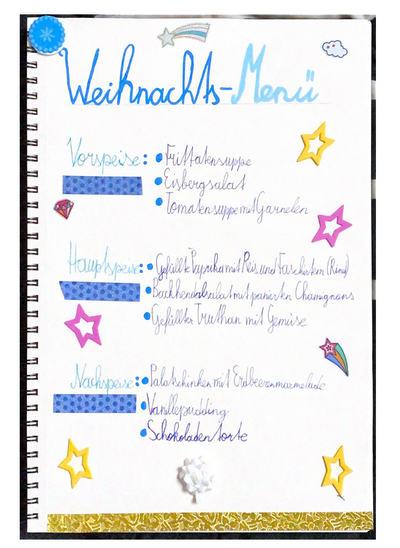 Weihnachts-Menü
Vorspeise: • Frittatensuppe
• Eisbergsalat
• Tomatensuppe mit Garnelen
Hauptspeise: • Gefüllte Paprika mit Reis und Faschiertem (Rind)
• Backhendlsalat mit panierten Chamignons
• Gefüllter Truthan mit Gemüse
Nachspeise: • Palatschinken mit Erdbeerenmarmelade
• Vanillepudding
• Schokoladentorte